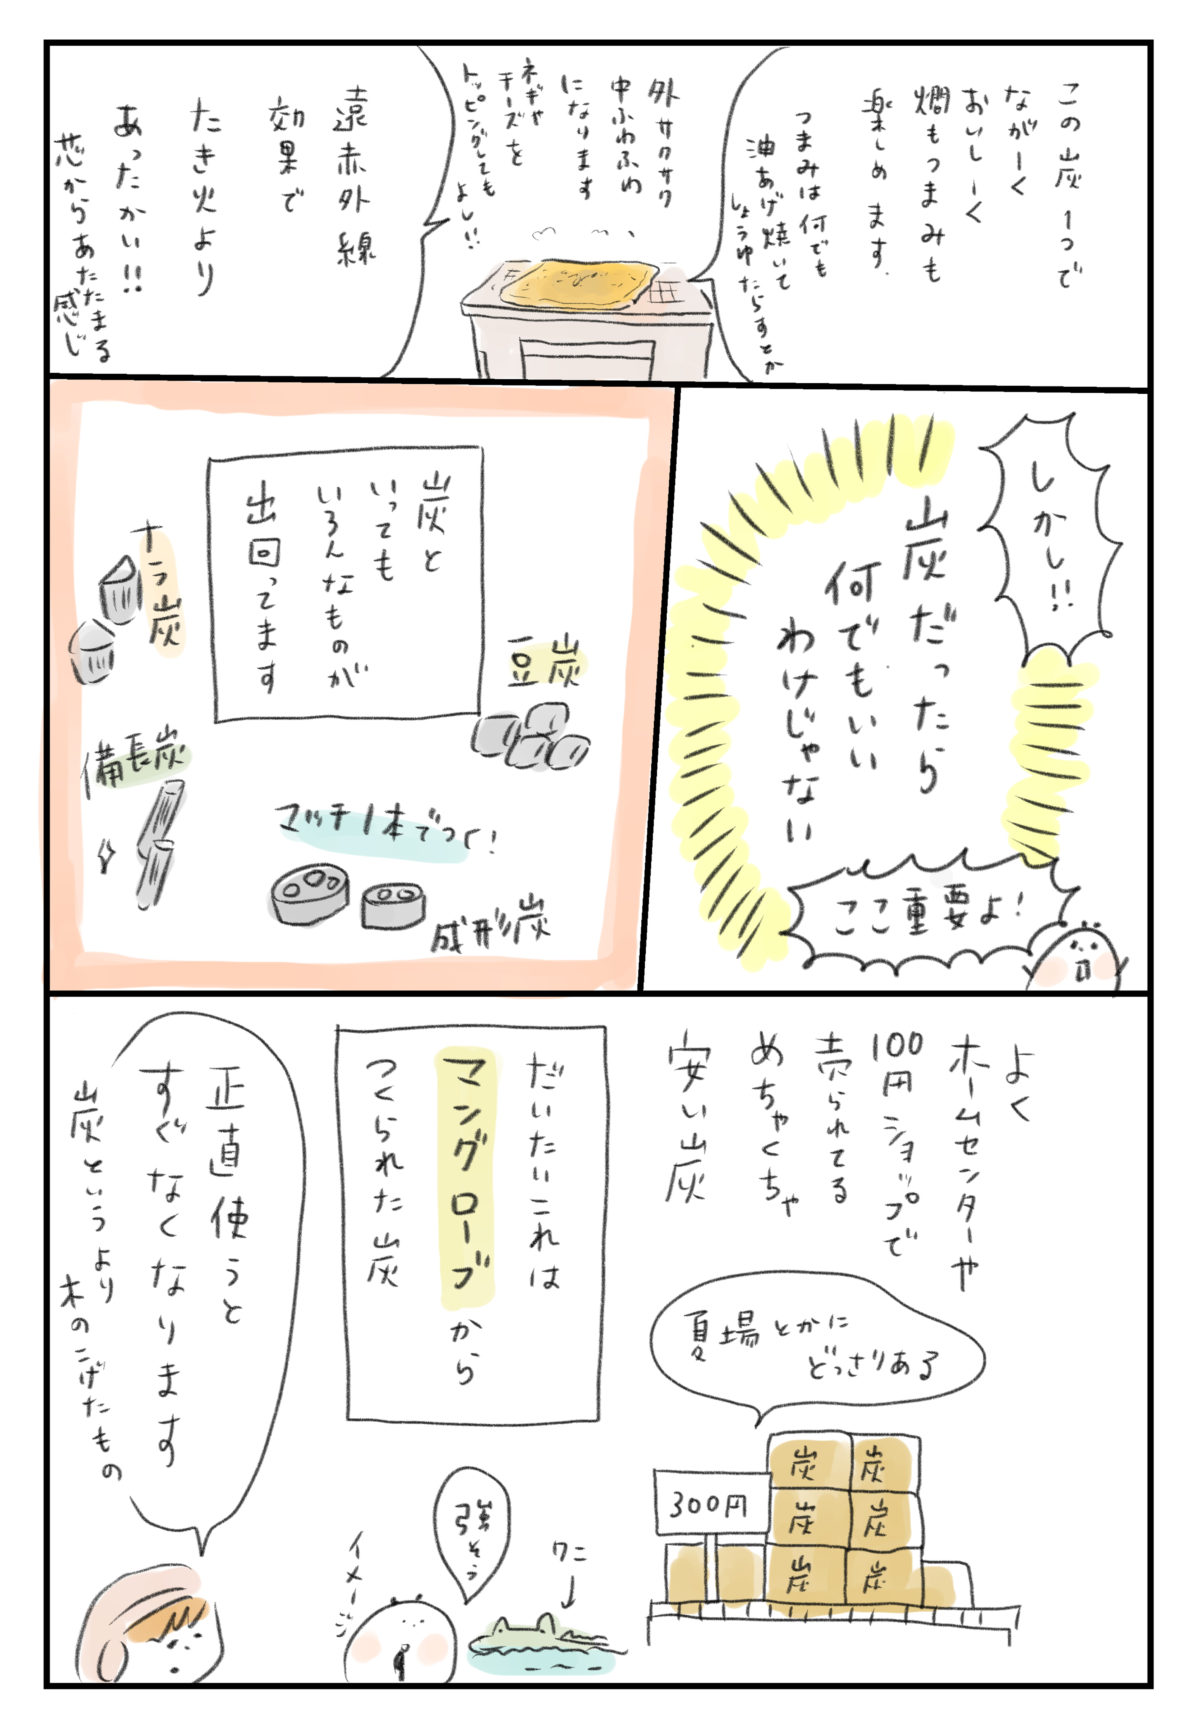 この炭1つで
ながーく
おいしーく
燗もつまみも
楽しめます.
つまみは何でも
油あげ焼いて
しょうゆたらすとか
外サクサク
中ふわふわ
になります
ネギや
チーズを
トッピングしても
よし!!
遠赤外線
効果で
たき火より
あったかい!!
芯からあたたまる
感じ
しかし!!
炭だったら
何でもいい
わけじゃない
ここ重要よ!
炭と
いっても
いろんなものが
出回ってます
豆炭
ナラ炭
備長炭
マッチ1本でつく!
成形炭
よく
ホームセンターや
100円ショップで
売られてる
めちゃくちゃ
安い炭
夏場とかに
どっさりある
炭 炭
炭 炭
炭 炭
300円
だいたいこれは
マングローブから
つくられた炭
ワニ
強そう
イメージ
正直使うと
すぐなくなります
炭というより
木のこげたもの